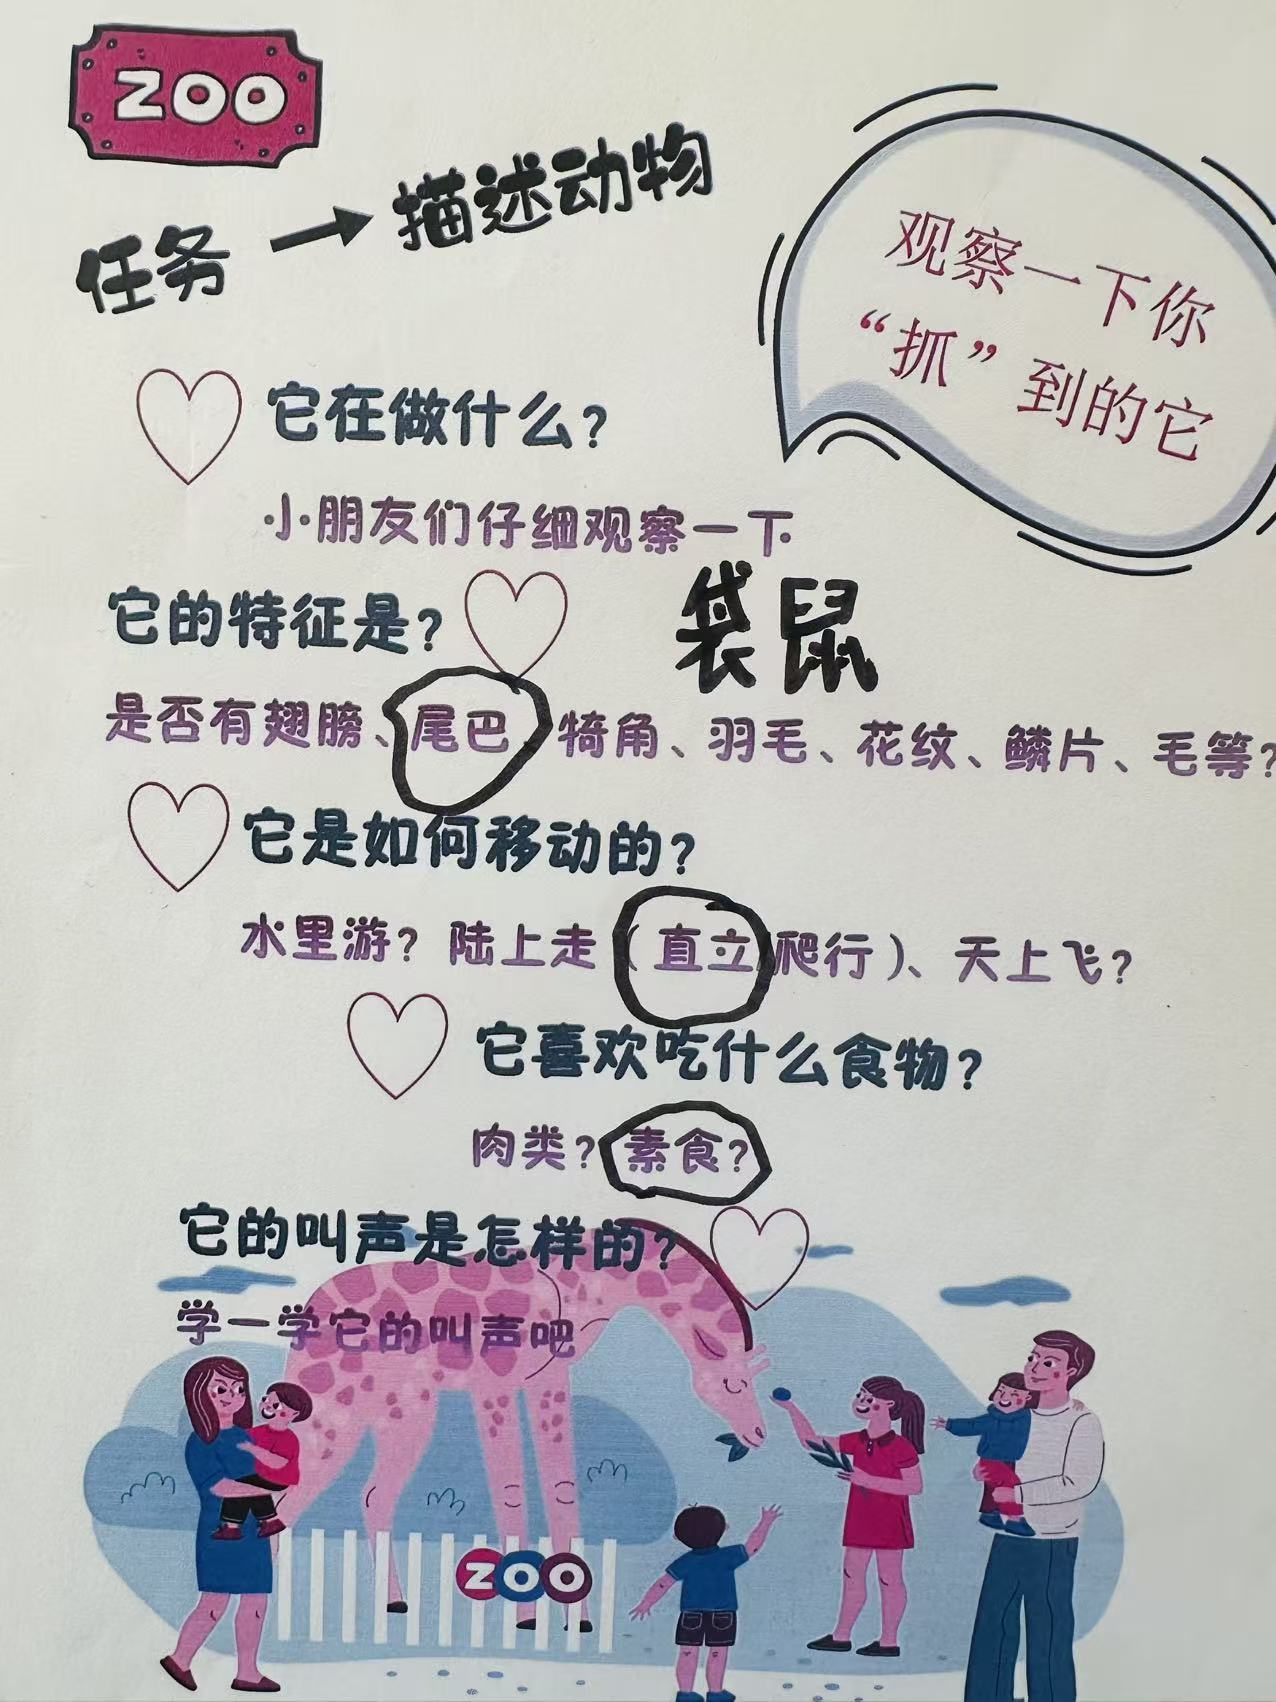 ZOO
任务→描述动物
观察一下你
“抓”到的它
它在做什么?
小朋友们仔细观察一下
它的特征是?
袋鼠
是否有翅膀、尾巴、犄角、羽毛、花纹、鳞片、毛等?
它是如何移动的?
水里游? 陆上走(直立爬行)、天上飞?
它喜欢吃什么食物?
肉类? 素食?
它的叫声是怎样的?
学一学它的叫声吧
ZOO